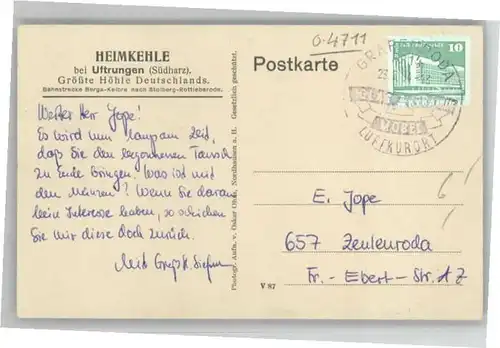 HEIMKEHLE
bei Uftrungen (Südharz).
Größte Höhle Deutschlands.
Bahnstrecke Berga-Kelbra nach Stolberg-Rottleberode.
Werter Herr Jope!
Es wird nun langsam Zeit,
daß Sie den begonnenen Tausch
zu Ende bringen. Was ist mit
den Münzen? Wenn Sie daran
kein Interesse haben, so schicken
Sie mir diese doch zurück.
Mit
Photogr. Aufn. v. Oskar Nordhausen a. H. Gesetzlich geschützt.
0-4711
Postkarte
10
LUFTKURORT
E. Jope
657 Zeulenroda
Fr.-Ebert-Str. 42
V 87